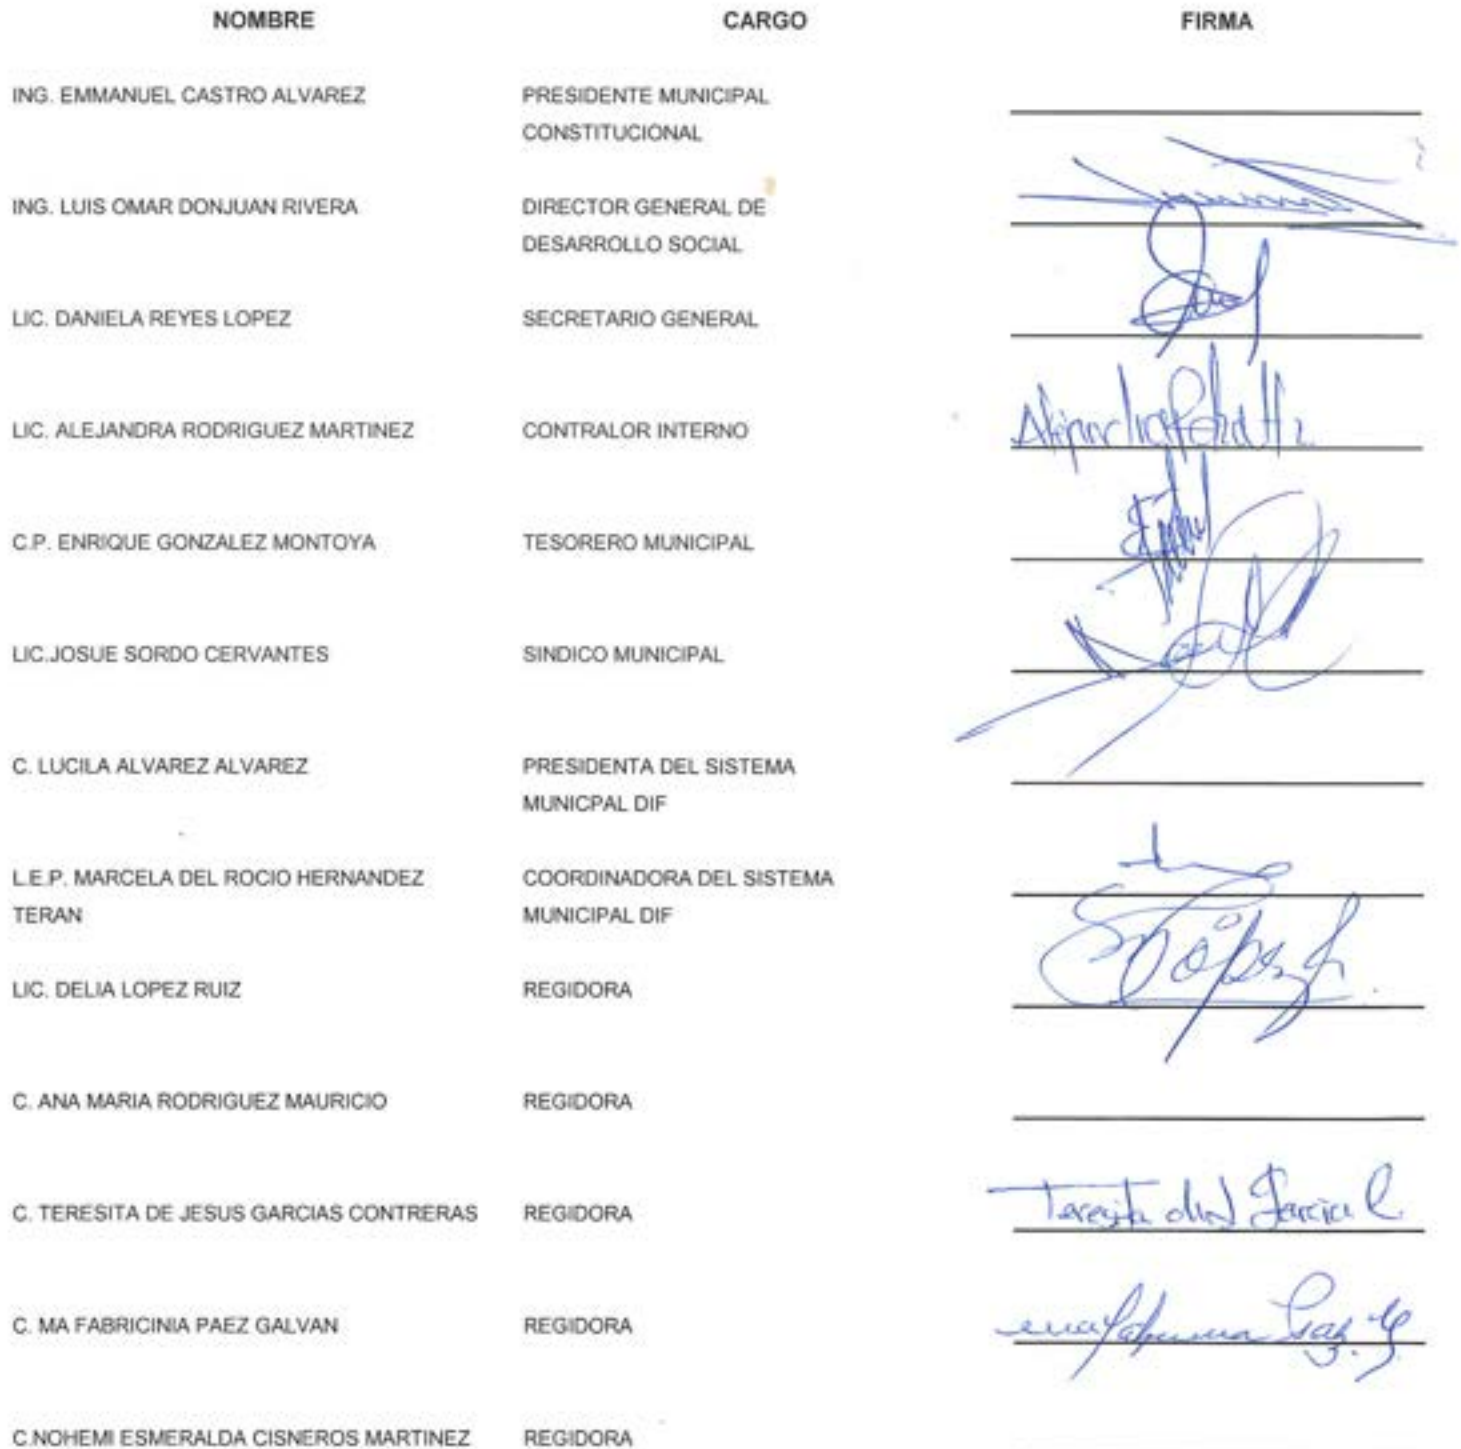 NOMBRE CARGO FIRMA
ING. EMMANUEL CASTRO ALVAREZ PRESIDENTE MUNICIPAL
CONSTITUCIONAL
ING. LUIS OMAR DONJUAN RIVERA DIRECTOR GENERAL DE
DESARROLLO SOCIAL
LIC. DANIELA REYES LOPEZ SECRETARIO GENERAL
LIC. ALEJANDRA RODRIGUEZ MARTINEZ CONTRALOR INTERNO
C.P. ENRIQUE GONZALEZ MONTOYA TESORERO MUNICIPAL
LIC.JOSUE SORDO CERVANTES SINDICO MUNICIPAL
C. LUCILA ALVAREZ ALVAREZ PRESIDENTA DEL SISTEMA
MUNICPAL DIF
L.E.P. MARCELA DEL ROCIO HERNANDEZ COORDINADORA DEL SISTEMA
TERAN MUNICIPAL DIF
LIC. DELIA LOPEZ RUIZ REGIDORA
C. ANA MARIA RODRIGUEZ MAURICIO REGIDORA
C. TERESITA DE JESUS GARCIAS CONTRERAS REGIDORA Teresita Garcia C
C. MA FABRICINIA PAEZ GALVAN REGIDORA
C.NOHEMI ESMERALDA CISNEROS MARTINEZ REGIDORA